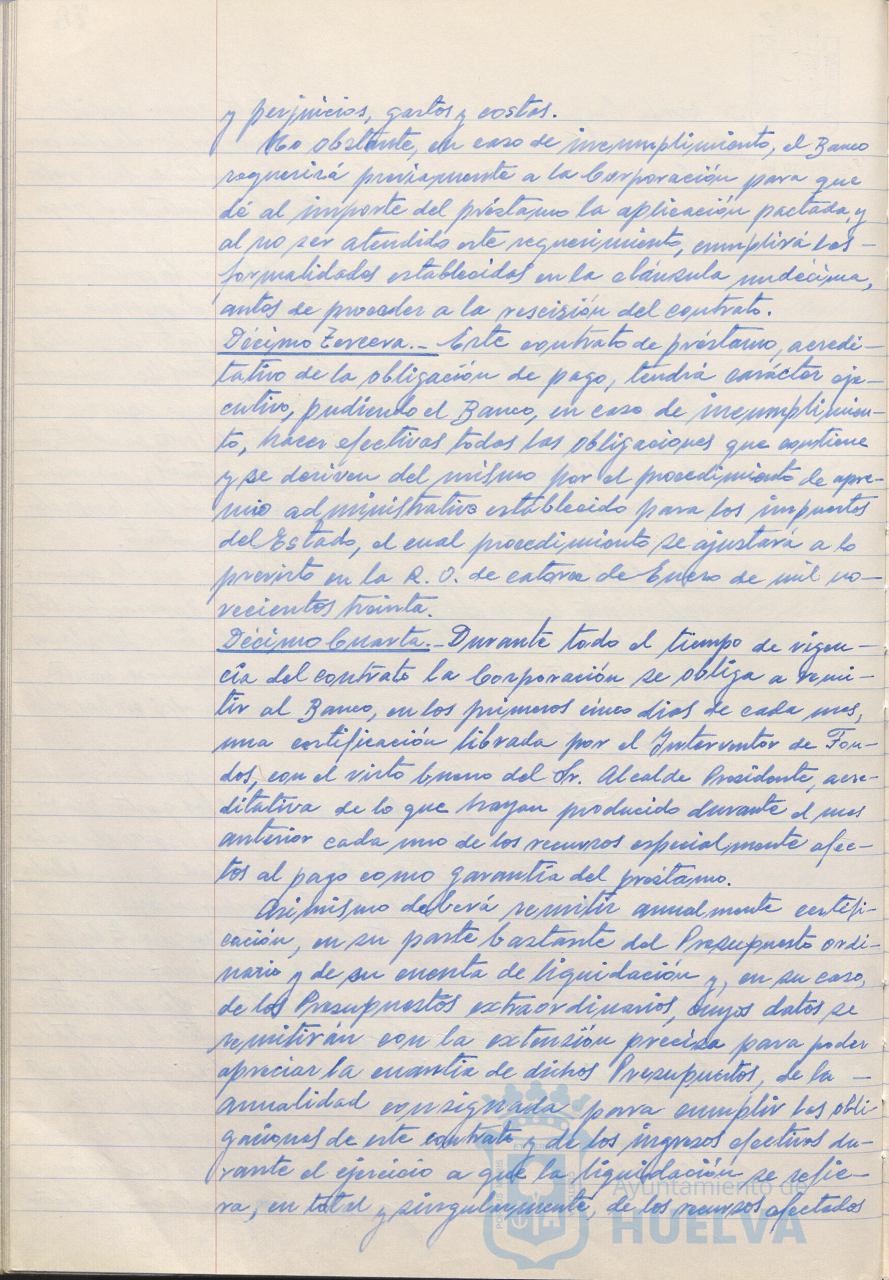 y perjuicios, gastos y costos.
No obstante, en caso de incumplimiento, el Banco
requerirá previamente a la Corporación para que
dé al importe del préstamo la aplicación pactada, y
al no ser atendido este requerimiento, cumplirá las —
formalidades establecidas en la cláusula undécima,
antes de proceder a la rescisión del contrato.
Décimo Tercera.- Este contrato de préstamo, acredi-
tativo de la obligación de pago, tendrá carácter eje-
cutivo, pudiendo el Banco, en caso de incumplimien-
to, hacer efectivas todas las obligaciones que contiene
y se deriven del mismo por el procedimiento de apre-
mio administrativo establecido para los impuestos
del Estado, el cual procedimiento se ajustará a lo
previsto en la R. O. de catorce de Enero de mil no-
vecientos treinta.
Décimo Cuarta.- Durante todo el tiempo de vigen-
cia del contrato la Corporación se obliga a remi-
tir al Banco, en los primeros cinco dias de cada mes,
una certificación librada por el Interventor de Fon-
dos, con el visto bueno del Sr. Alcalde Presidente, acre-
ditativa de lo que hayan producido durante el mes
anterior cada uno de los recursos especialmente afec-
tos al pago como garantía del préstamo.
Asimismo deberá remitir anualmente certifi-
cación, en su parte bastante del Presupuesto ordi-
nario y de su cuenta de liquidación y, en su caso,
de los Presupuestos extraordinarios, cuyos datos se
remitirán con la extensión precisa para poder
apreciar la cuantía de dichos Presupuestos, de la —
anualidad consignada para cumplir las obli-
gaciones de este contrato y de los ingresos efectivos du-
rante el ejercicio a que la liquidación se refie-
ra, en total y singularmente, de los recursos afectados
Ayuntamiento de
HUELVA